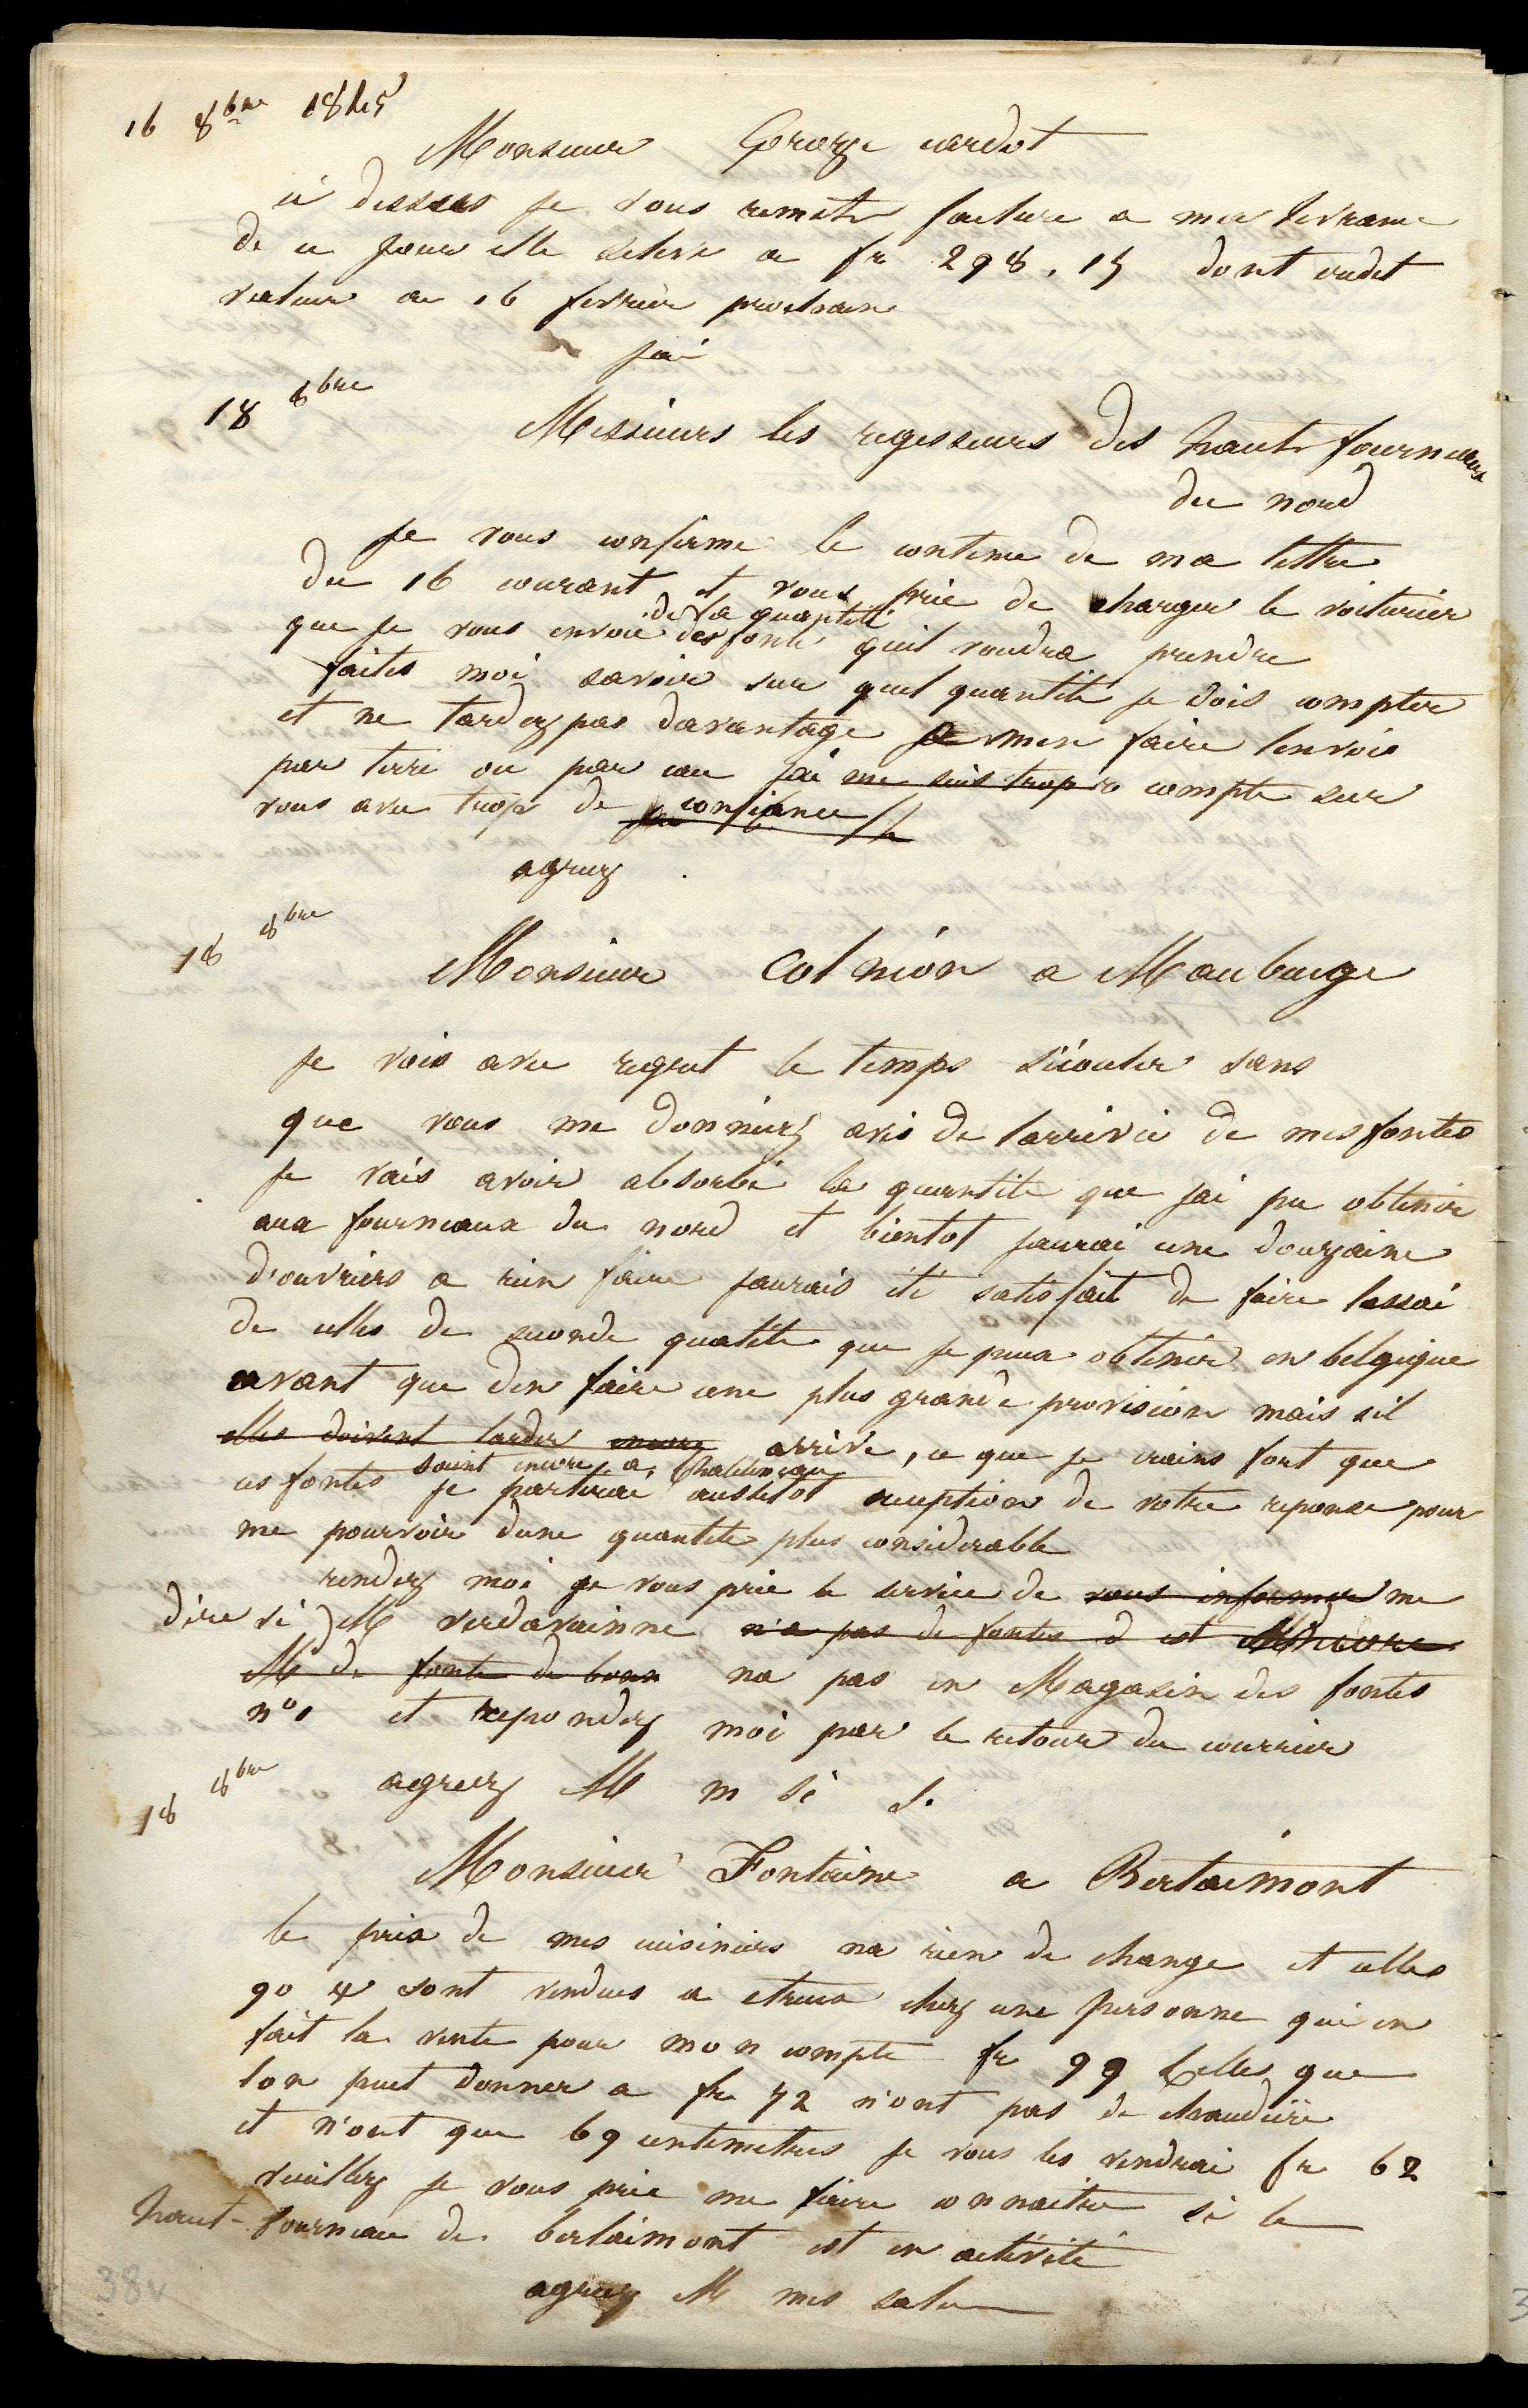 16 8bre 1845
Monsieur George cardot
ci dessus je vous remets facture a ma livraison
de ce jour elle seleve a fr 298.15 dont credit
valeur au 16 fevrier prochain
jai
18 8bre
Messieurs les regisseurs des haut fourneaux
du nord
Je vous confirme le contenu de ma lettre
du 16 courant et vous prie de charger le voiturier
que je vous envoie de la quantité des fonte quil voudra prendre
faites moi savoir sur quel quantité je dois compter
et ne tardez pas davantage a men faire lenvoie
par terre ou par eau jai me suis trop compte sur
vous avec trop de confiance
agreez
18 8bre
Monsieur Colnion a Maubeuge
Je vois avec regret le temps sécouler sans
que vous me donniez avis de larrivée de mes fontes
Je vais avoir absorbé la quantité que jai pu obtenir
aux fourneaux du nord et bientot jaurai une douzaine
d'ouvriers a rien faire jaurais été satisfait de faire lessai
de celles de seconde qualité que je peux obtenir en belgique
avant que den faire une plus grande provision mais sil
elles doivent tarder encore arrive, ce que je crains fort que
ces fontes soient encore a Chatelineau je partirai aussitot reception de votre reponse pour
me pourvoir dune quantité plus considerable
rendez moi je vous prie le service de vous informer me
dire si M verdavainne n'a pas de fontes d est
M de fonte de bonn na pas en Magasin des fontes
n°1 et repondez moi par le retour du courrier
agreez M m se s.
18 8bre
Monsieur Fontaine a Berlaimont
le prix de mes cuisinieres na rien de change et celles
90 4 sont vendues a etreux chez une personne qui en
fait la vente pour mon compte fr 99 Celles que
lon peut donner a fr 72 n'ont pas de chaudiere
et n'ont que 69 centimetres je vous les vendrai fr 62
veuillez je vous prie me faire connaitre si le
haut-fourneau de berlaimont est en activité
agreez M mes salu
38v